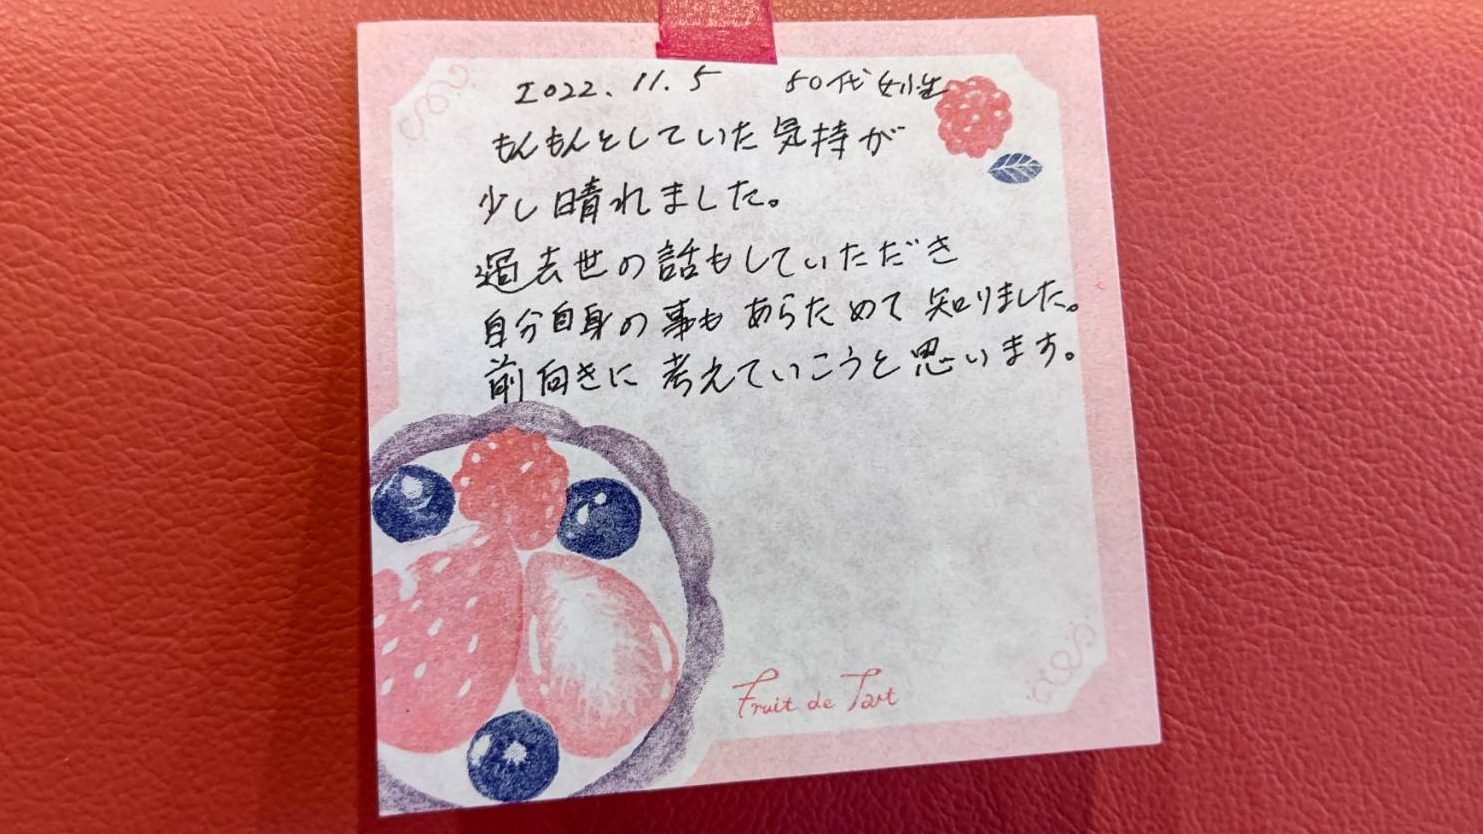 2022.11.5 50代女性
もんもんとしていた気持が
少し晴れました。
過去世の話もしていただき
自分自身の事もあらためて知りました。
前向きに考えていこうと思います。
Fruit de Tart